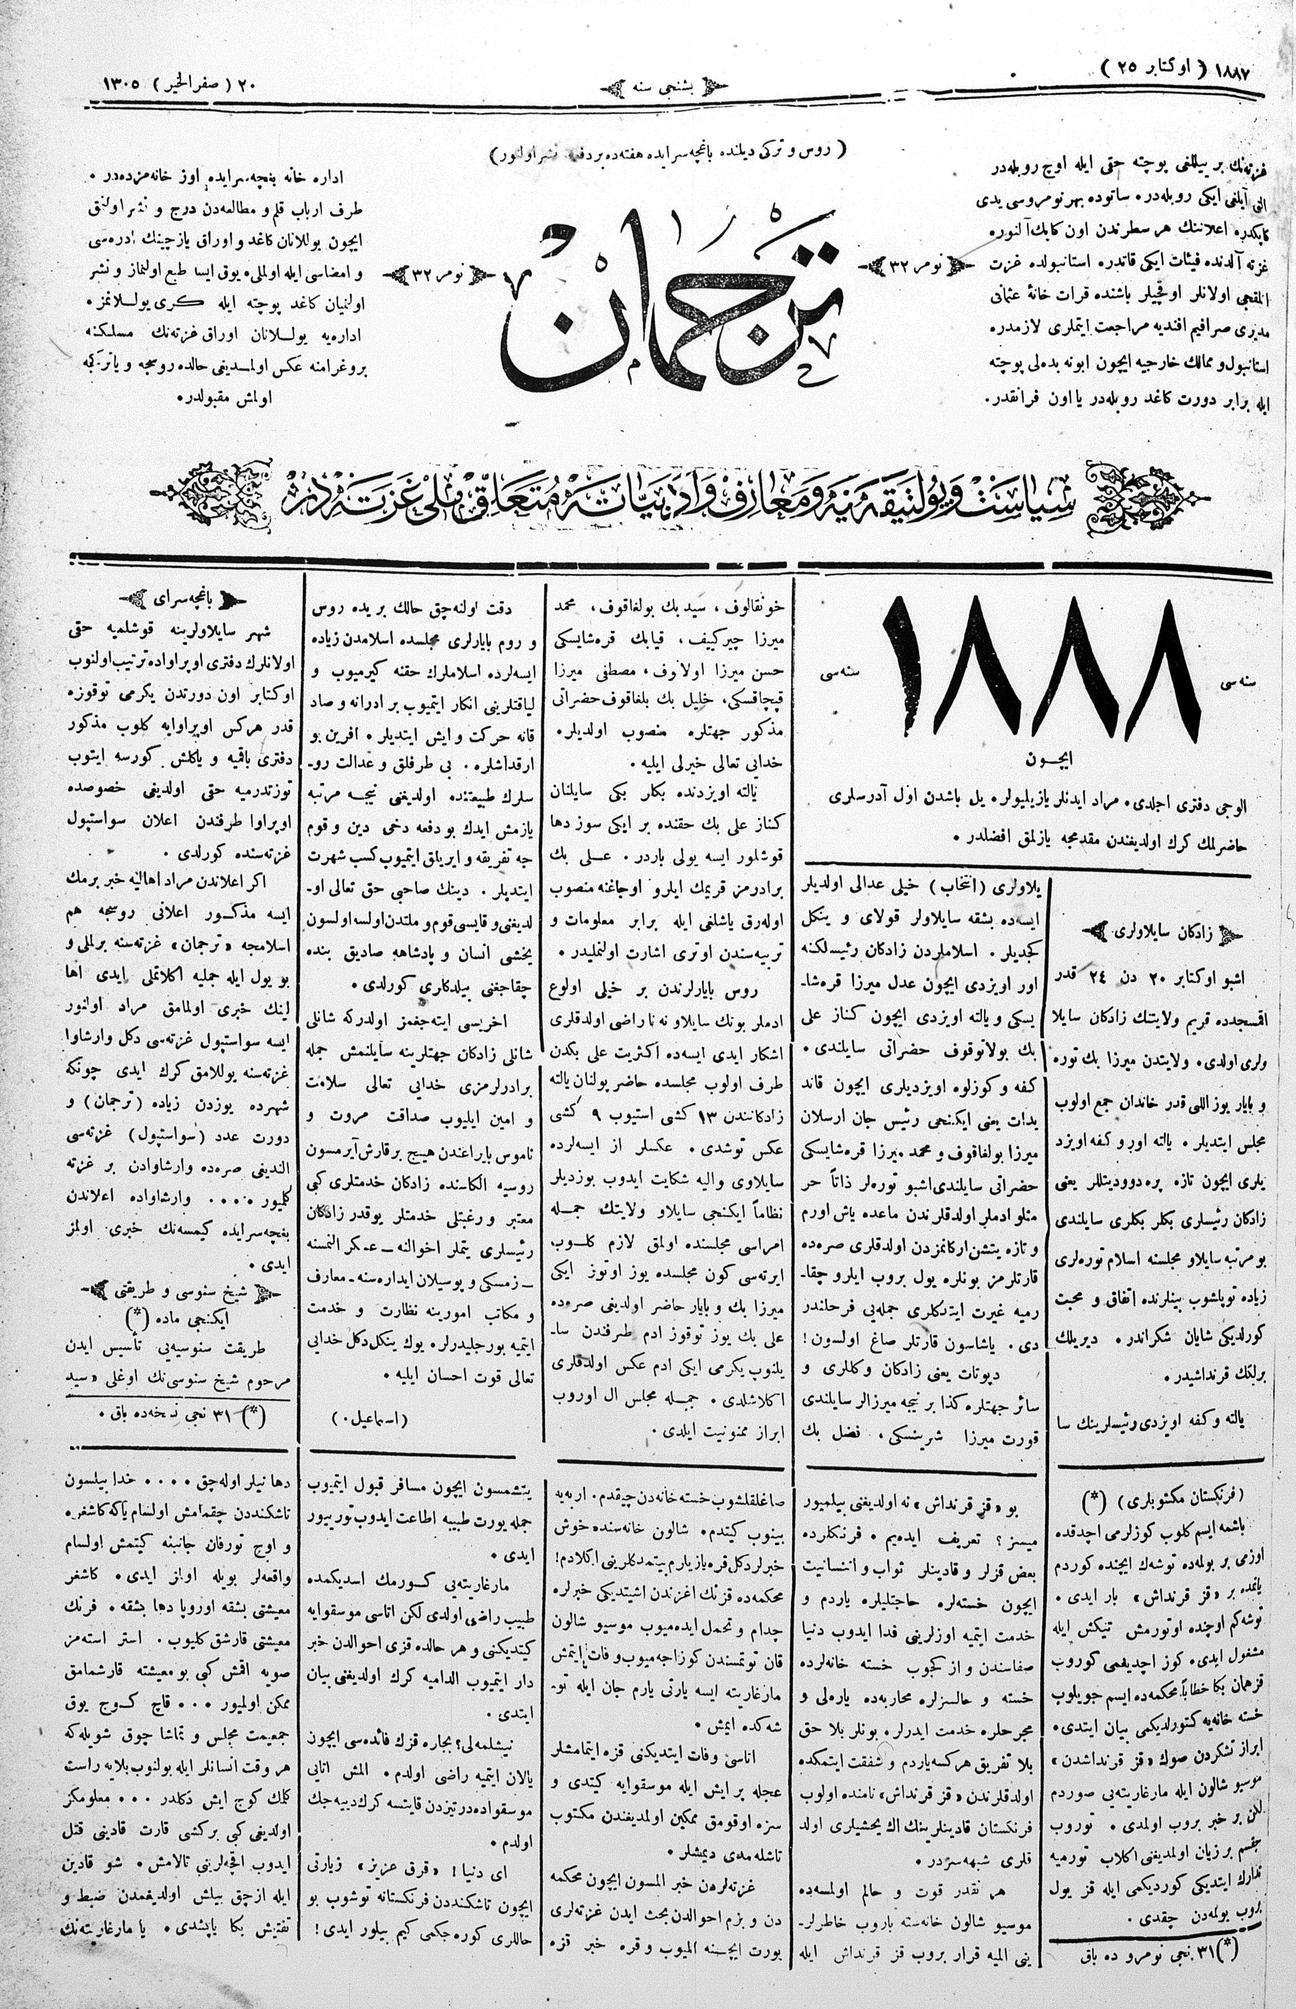 ١٨٨٧ ( اوكتابر ٢٥ )
بشنجی سنه
٢٠ ( صفر الخير ) ١٣٠٥
( روس و تركی ديلنده باغچه سرايده هفته ده بر دفعه نشر اولنور )
غزته نك بر ييللغی پوچته حقی ايله اوچ روبله در
التی آيلغی ايكی روبله در٠ ساتوده بهر نومروسی يدی
كابكدر٠ اعلاننك هر سطرندن اون كابك آلنور٠
غزته آلدنده فيئات ايكی قاتدر٠ استانبولده غزت
القجی اولانلر اوقچيلر باشنده قرات خانۀ عثمانی
مديری صرافيم افنديه مراجعت ايتملری لازمدر٠
استانبول و ممالك خارجيه ايچون ابونه بدلی پوچته
ايله برابر دورت كاغد روبله در يا اون فرانقدر.
نومر ٣٢
ترجمان
نومر ٣٢
اداره خانه بغچه سرايده اوز خانه مزده در ٠
طرف ارباب قلم و مطالعه دن درج و نشر اولنق
ايچون يوللانان كاغد و اوراق يازجينك ادره سی
و امضاسی ايله اولملی٠ يوق ايسا طبع اولنماز و نشر
اولنميان كاغد پوچته ايله كری يوللانمز٠
اداريه يوللانان اوراق غزته نك مسلكنه
پروغرامنه عكس اولمديغی حالده روسجه و يا تركچه
اولمش مقبولدر٠
سياست و پولتيقه يه و معارف و ادبياته متعلق ملی غزته در
١٨٨٨
سنه سی
سنه سی
ايچون
الوجی دفتری اچلدی٠ مراد ايدنلر يازيليولر٠ يل باشدن اول آدرسلری
حاضرلمك كرك اولديغندن مقدمجه يازلمق افضلدر ٠
زادكان سايلاولری
اشبو اوكتابر ٢٠ دن ٢٤ قدر
اقمسجدده قريم ولايتنك زادكان سايلا
ولری اولدی٠ ولايتدن ميرزا بك توره
و بايار يوز اللی قدر خاندان جمع اولوب
مجلس ايتديلر ٠ يالته اور و كفه اويزد
يلری ايچون تازه پره دووديتللر يعنی
زادكان رئيسلری بكلر بكلری سايلندی
بو مرتبه سايلاو مجلسنه اسلام توره لری
زياده توپلشوب بينلرنده اتفاق و محبت
كورلديكی شايان شكراندر ٠ ديريلك
برلكك قرنداشيدر ٠
يالته و كفه اويزدی رئيسلرينك سا
يلاولری (انتخاب) خيلی عدالی اولديلر
ايسه ده بشقه سايلاولر قولای و ينكل
كچديلر ٠ اسلاملردن زادكان رئيسلكنه
اور اويزدی ايچون عدل ميرزا قره شا-
يسكی و يالته اويزدی ايچون كناز علی
بك بولاتوقوف حضراتی سايلندی٠
كفه و كوزلوه اويزديلری ايچون قاند
يدات يعنی ايكنجی رئيس جان ارسلان
ميرزا بولغاقوف و محمد ميرزا قره شايسكی
حضراتی سايلندی اشبو توره لر ذاتاً حر
متلو ادملر اولدقلرندن ماعده ياش اورم
و تازه يتشن اركانمزدن اولدقلری صره ده
قارتلرمز بونلره يول بروب ايلرو چقا-
رميه غيرت ايتدكلری جمله يی فرحلندر
دی ٠ ياشاسون قارتلر صاغ اولسون!
دپوتات يعنی زادكان وكللری و
سائر جهتلره كذا بر نيجه ميرزالر سايلندی
قورت ميرزا شرينسكی، فضل بك
خونقالوف، سيد بك بولغاقوف، محمد
ميرزا چيركييف، قيابك قره شايسكی
حسن ميرزا اولازوف، مصطفی ميرزا
قپچاقسكی، خليل بك بلغاقوف حضراتی
مذكور جهتلره منصوب اولديلر٠
خدايی تعالی خيرلی ايليه ٠
يالته اويزدنده بكلر بكی سايلنان
كناز علی بك حقنده بر ايكی سوز دها
قوشلور ايسه يولی باردر ٠ علی بك
برادرمز قريمك ايلرو اوجاغنه منصوب
اوله رق ياشلغی ايله برابر معلومات و
تربيه سندن اوتری اشارت اولنمليدر ٠
روس بايارلرندن بر خيلی اولوغ
ادملر بونك سايلاونه ناراضی اولدقلری
اشكار ايدی ايسه ده اكثريت علی بكدن
طرف اولوب مجلسده حاضر بولنان يالته
زادكانندن ١٣ كشی استيوب ٩ كشی
عكس توشدی ٠ عكسلر از ايسه لرده
سايلاوی واليه شكايت ايدوب بوزديلر
نظاماً ايكنجی سايلاو ولايتك جمله
امراسی مجلسنده اولمق لازم كلوب
ايرته سی كون مجلسده يوز اوتوز ايكی
ميرزا بك و بايار حاضر اولديغی صره ده
علی بك يوز توقوز ادم طرفندن سا-
يلنوب يكرمی ايكی ادم عكس اولدقلری
اكلاشلدی ٠ جمله مجلس ال اوروب
ابراز ممنونيت ايلدی ٠
دقت اولنه چق حالك بريده روس
و روم بايارلری مجلسده اسلامدن زياده
ايسه لرده اسلاملرك حقنه كيرميوب و
لياقتلرينی انكار ايتميوب برادرانه و صاد
قانه حركت و ايش ايتديلر ٠ افرين بو
ارقداشلره ٠ بی طرفلق و عدالت رو-
سلرك طبيعتنده اولديغنی نيجه مرتبه
يازمش ايدك بو دفعه دخی دين و قوم
جه تفريقه و ايريلق ايتميوب كسب شهرت
ايتديلر ٠ دينك صاحبی حق تعالی او-
لديغی و قايسی قوم و ملتدن اولسه اولسون
يخشی انسان و پادشاهه صاديق بنده
چقاجغنی بيلدكاری كورلدی ٠
اخريسی ايته جغمز اولدركه شانلی
شانلی زادكان جهتلرينه سايلنمش جمله
برادرلرمزی خدايی تعالی سلامت
و امين ايليوب صداقت مروت و
ناموس بايراغندن هيچ بر قارش آيرمسون
روسيه الكاسنده زادكان خدمتلری كبی
معتبر و رغبتلی خدمتلر يوقدر زادكان
رئيسلری يتملر اخوالنه - عسكر النمسنه
- زمسكی و پوسيلان ايداره سنه - معارف
و مكاتب امورينه نظارت و خدمت
ايتميه بورجليدرلر٠ يوك ينكل دكل خدايی
تعالی قوت احسان ايليه ٠
(اسماعيل٠)
باغچه سرای
شهر سايلاولرينه قوشلميه حقی
اولانلرك دفتری اوپراواده ترتيب اولنوب
اوكتابر اون دورتدن يكرمی توقوزه
قدر هركس اوپراوايه كلوب مذكور
دفتری باقميه و ياكلش كورسه ايتوب
توزتدرميه حقی اولديغی خصوصده
اوپراوا طرفندن اعلان سواستپول
غزته سنده كورلدی ٠
اكر اعلاندن مراد اهاليه خبر برمك
ايسه مذكور اعلانی روسجه هم
اسلامجه «ترجمان» غزته سنه برملی و
بو يول ايله جمليه اكلاتملی ايدی اما
اينك خبری اولمامق مراد اولنور
ايسه سواستپول غزته سی دكل وارشاوا
غزته سنه يوللامق كرك ايدی چونكه
شهرده يوزدن زياده (ترجمان) و
دورت عدد (سواستپول) غزته سی
النديغی صره ده وارشاوادن بر غزته
كليور ٠٠٠٠ وارشاواده اعلاندن
بغچه سرايده كيمسه نك خبری اولمز
ايدی ٠
شيخ سنوسی و طريقتی
ايكنجی ماده (*)
طريقت سنوسيه يی تأسيس ايدن
مرحوم شيخ سنوسی نك اوغلی «سيد
(*) ٣١ نجی نسخه ده باق ٠
(فرنكستان مكتوبلری) (*)
باشمه ايسم كلوب كوزلرمی اچدقده
اوزمی بر بولمه ده توشه ك ايچنده كوردم
يانمده بر «قز قرنداش» بار ايدی ٠
توشه كم اوچنده اوتورمش تيكش ايله
مشغول ايدی٠ كوز اچديغمی كوروب
قزهمان بكا خطاباً محكمه ده ايسم جويلوب
خسته خانه يه كتورلديكمی بيان ايتدی٠
ابراز تشكردن صوك «قز قرنداشدن»
موسيو شالون ايله مارغاريته يی صوردم
لكن بر خبر بروب اولمدی ٠ توروب
جسم بر زيان اولمديغنی اكلاب تورميه
تدارك ايتديكی كورديكمی ايله قز يول
بروب بولمه دن چقدی ٠
(*) ٣١ نجی نومرو ده باق
بو «قز قرنداش» نه اولديغنی بيلميور
ميسز؟ تعريف ايده يم ٠ فرنكلرده
بعض قزلر و قادينلر ثواب و انسانيت
ايچون خسته لره حاجتليلره ياردم و
خدمت ايتميه اوزلرينی فدا ايدوب دنيا
صفاسندن و از كچوب خسته خانه لرده
خسته و حالسزلره محاربه ده ياره لی و
مجرحلره خدمت ايدرلر ٠ بونلر بلا حق
بلا تفريق هركسه ياردم و شفقت ايتمكده
اولدقلرندن «قز قرنداش» نامنده اولوب
فرنكستان قادينلرينك اك يخشيلری اولد
قلری شبهه سزدر ٠
هر نقدر قوت و حالم اولمسه ده
موسيو شالون خانه سنه باروب خاطرلر-
ينی الميه قرار بروب قز قرنداش ايله
صاغلقلشوب خسته خانه دن چيقدم٠ اربه يه
بينوب كيتدم ٠ شالون خانه سنده خوش
خبرلر دكل قره يازيارم بيتمدكلرينی اكلادم!
محكمه ده قزنك اغزندن اشيتديكی خبرلره
چدام و تحمل ايده ميوب موسيو شالون
قان توتمسندن كوز اچه ميوب وفات ايتمش
مارغاريته ايسه يارتی يارم جان ايله تو-
شه كده ايمش ٠
اتاسی وفات ايتديكنی قزه ايتمامشلر
عجله بر ايش ايله موسقوايه كيتدی و
سزه اوقومق ممكين اولمديغندن مكتوب
تاشله مه دی ديمشلر ٠
غزته لردن خبر المسون ايچون محكمه
دن و بزم احوالدن بحث ايدن غزته لری
يورت ايچسنه الميوب و قره خبر قزه
يتشمسون ايچون مسافر قبول ايتميوب
جمله يورت طبيبه اطاعت ايدوب توريبور
ايدی ٠
مارغاريته يی كورمك استديكمده
طبيب راضی اولدی لكن اتاسی موسقوايه
كيتديكنی و هر حالده قزی احوالدن خبر
دار ايتميوب الداميه كرك اولديغنی بيان
ايتدی ٠
نيشلمه لی؟ بچاره قزك فائده سی ايچون
يالان ايتميه راضی اولدم ٠ المش اتايی
موسقواده در تيزدن قايتسه كرك دييه جك
اولدم ٠
ای دنيا! «قرق عزيز» زيارتی
ايچون تاشكنددن فرنكستانه توشوب بو
حاللری كوره جكمی كيم بيلور ايدی!
دها نيلر اوله چق ٠٠٠٠ خدا بيلسون
تاشكنددن چقمامش اولسام ياكه كاشغره
و اوچ تورفان جانبنه كيتمش اولسام
واقعه لر بويله اولمز ايدی ٠ كاشغر
معيشتی بشقه اوروپا دها بشقه ٠ فرنك
معيشتی قارشق كليوب ٠ استر استه مز
صويه اقش كبی بو معيشته قارشمامق
ممكن اولميور ٠٠٠ قاچ كوچ يوق
جمعيت مجلس و تماشا چوق شويله كه
هر وقت انسانلر ايله بولنوب بلايه راست
كلمك كوچ ايش دكلدر ٠٠٠ معلومكز
اولديغی كبی بر كشی قارت قادينی قتل
ايدوب اقچه لرينی تالامش ٠ شو قادين
ايله ازچق بيلش اولديغمدن ضبط و
تفتيش بكا ياپشدی ٠ يا مارغاريته نك